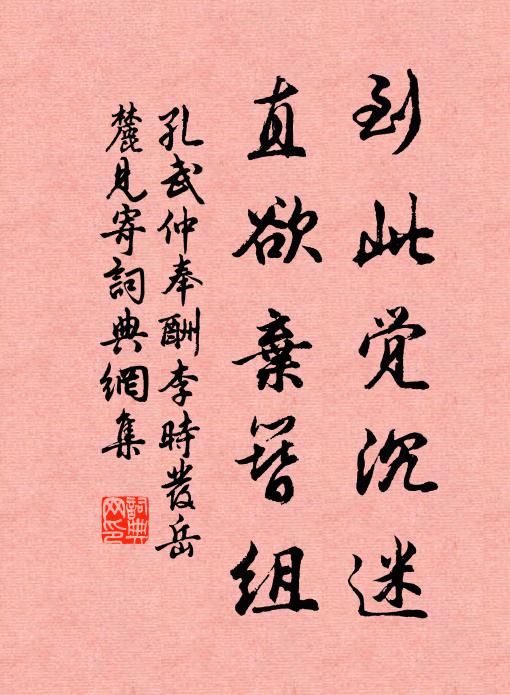 到此觉沉迷
直欲棄簪組
孔武仲奉酬李時發岳
麓見寄詞典網集
詞典
网印